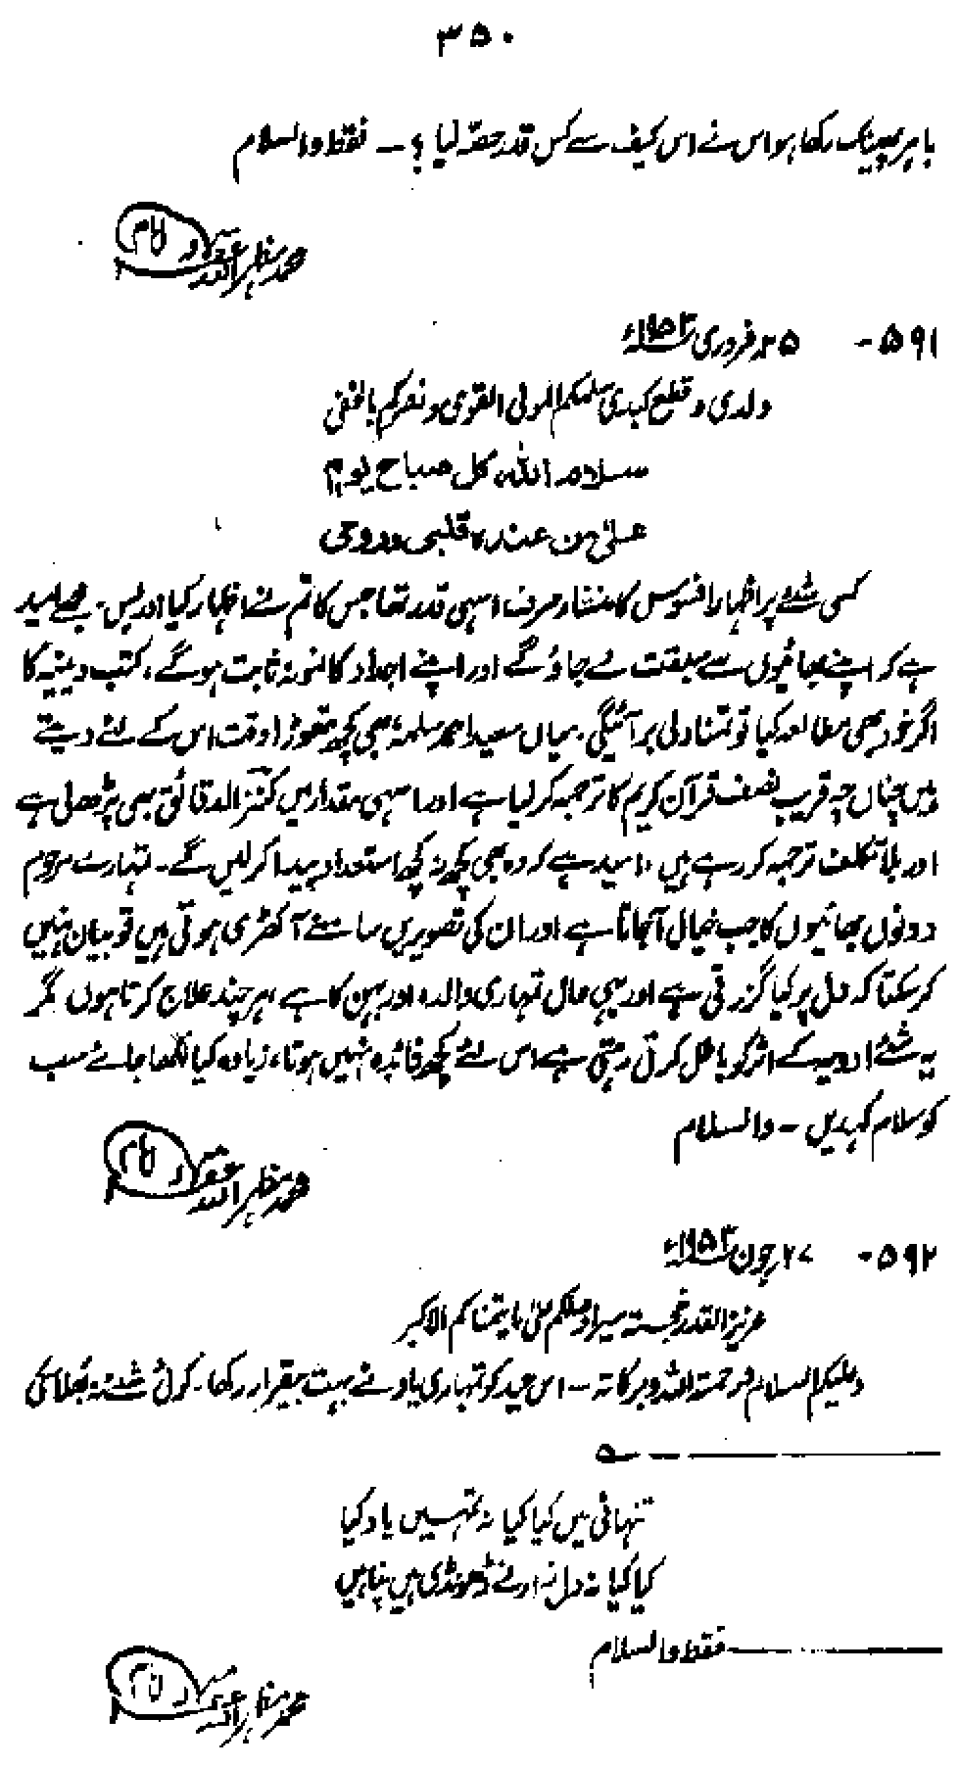 ۳۵۰
باہر پھینک رکھا ہو اس نے اس کیف سے کس قدر حصہ لیا ؟ ـ فقط والسلام
محمد مظہر اللہ غفرلہ
۵۹۱- ۲۵ فروری ۱۹۵۳ء
ولدی و قطع کبدی سلمکم المولی القوی و نصرکم بالخفی
سلام اللہ کل صباح یوم
علیٰ من عندہ قلبی و روحی
کسی شئے پر اظہار افسوس کا منشاء صرف اسی قدر تھا جس کا تم نے اظہار کیا اور بس۔ مجھے امید
ہے کہ اپنے بھائیوں سے سبقت لے جاؤ گے اور اپنے اجداد کا نمونہ ثابت ہو گے، کتب دینیہ کا
اگر خود بھی مطالعہ کیا تو تمنا دلی بر آئیگی۔ میاں سعید احمد سلمہٗ بھی کچھ تھوڑا وقت اس کے لئے دیتے
ہیں چناں چہ قریب نصف قرآن کریم کا ترجمہ کر لیا ہے اور اسی مقدار میں کنز الدقائق بھی پڑھ لی ہے
اور بلا تکلف ترجمہ کر رہے ہیں، امید ہے کہ وہ بھی کچھ نہ کچھ استعداد پیدا کر لیں گے۔ تمہارے مرحوم
دونوں بھائیوں کا جب خیال آجاتا ہے اور ان کی تصویریں سامنے آ کھڑی ہوتی ہیں تو بیان نہیں
کر سکتا کہ دل پر کیا گزرتی ہے اور یہی حال تمہاری والدہ اور بہن کا ہے ہر چند علاج کرتا ہوں مگر
یہ شئے ادویہ کے اثر کو باطل کرتی رہتی ہے اس لئے کچھ فائدہ نہیں ہوتا، زیادہ کیا لکھا جائے سب
کو سلام کہدیں ـ والسلام
محمد مظہر اللہ غفرلہ
۵۹۲- ۲۷ جون ۱۹۵۳ء
عزیز القدر خجستہ سیر اوصلکم علیٰ ما یتمناکم الاکبر
وعلیکم السلام ورحمتہ اللہ وبرکاتہ ـ اس عید کو تمہاری یاد نے بہت بیقرار رکھا۔ کوئی شئے نہ بُھلا سکی
ہ
تنہائی میں کیا کیا نہ تمہیں یاد کیا
کیا کیا نہ دل زار نے ڈھونڈی ہیں پناہیں
فقط والسلام
محمد مظہر اللہ غفرلہ